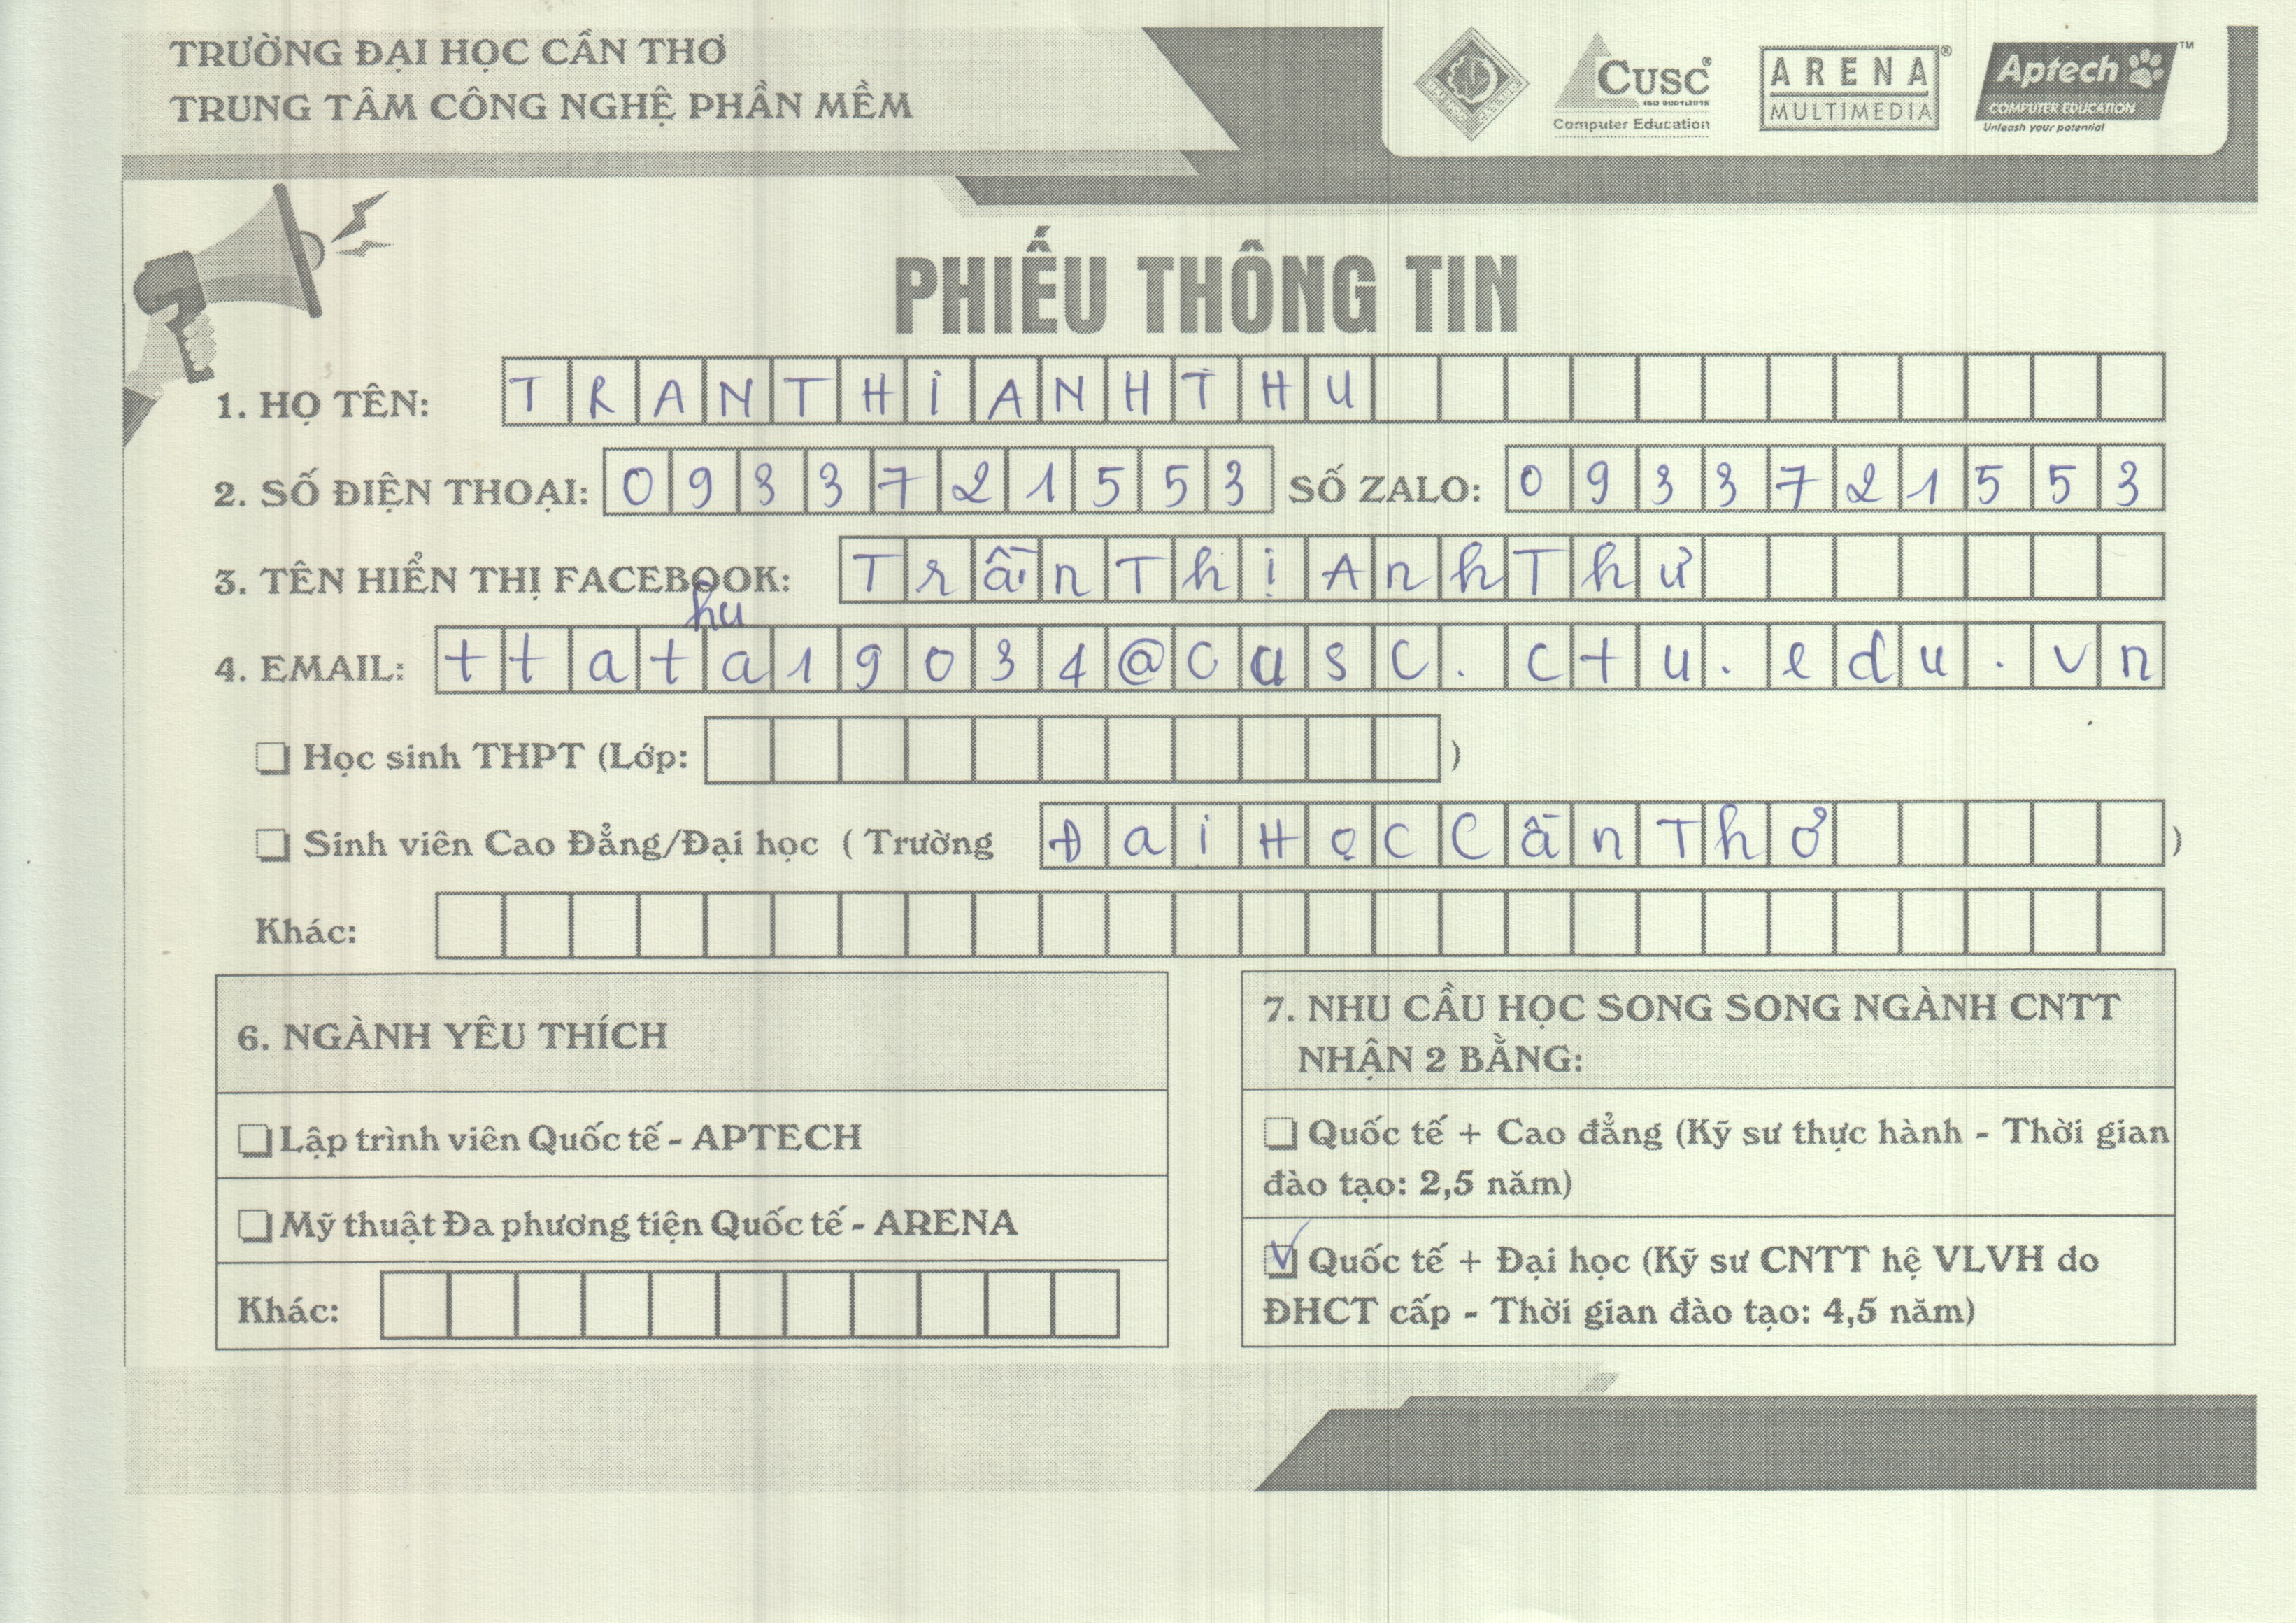 TRƯỜNG ĐẠI HỌC CẦN THƠ
TRUNG TÂM CÔNG NGHỆ PHẦN MỀM
CUSC®
ISO 9001:2015
Computer Education
ARENA®
MULTIMEDIA
Aptech™
COMPUTER EDUCATION
Unleash your potential
PHIẾU THÔNG TIN
1. HỌ TÊN: TRANTHIANHTHU
2. SỐ ĐIỆN THOẠI: 0933721553 SỐ ZALO: 0933721553
3. TÊN HIỂN THỊ FACEBOOK: TrầnThịAnhThư
hu
4. EMAIL: ttata19034@cusc.ctu.edu.vn
Học sinh THPT (Lớp: )
Sinh viên Cao Đẳng/Đại học ( Trường ĐaịHọcCầnThơ )
Khác:
6. NGÀNH YÊU THÍCH
Lập trình viên Quốc tế - APTECH
Mỹ thuật Đa phương tiện Quốc tế - ARENA
Khác:
7. NHU CẦU HỌC SONG SONG NGÀNH CNTT
NHẬN 2 BẰNG:
Quốc tế + Cao đẳng (Kỹ sư thực hành - Thời gian
đào tạo: 2,5 năm)
Quốc tế + Đại học (Kỹ sư CNTT hệ VLVH do
ĐHCT cấp - Thời gian đào tạo: 4,5 năm)